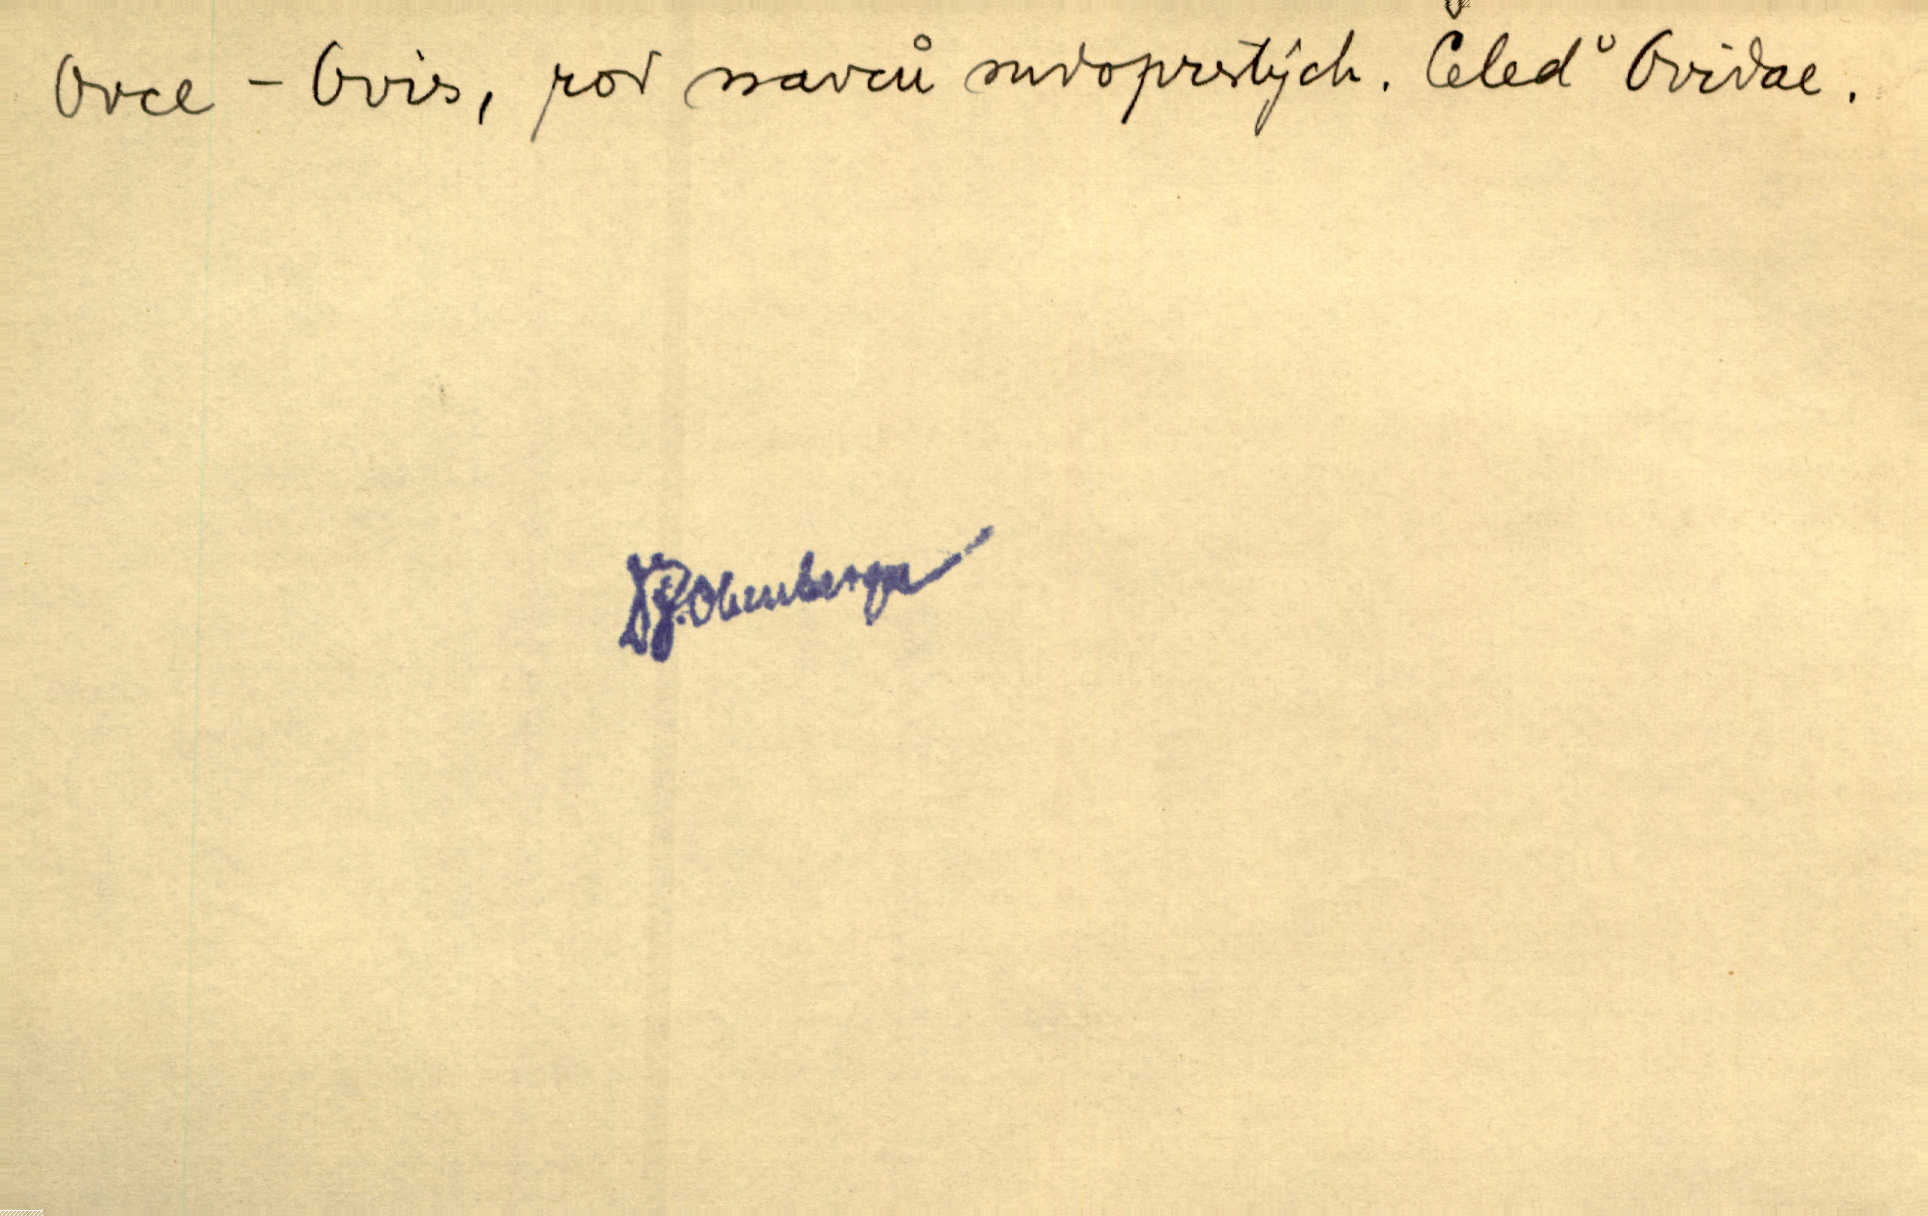 Ovce – Ovis, rod savců sudoprstých. Čeleď Ovidae.
Dr J. Obenberger